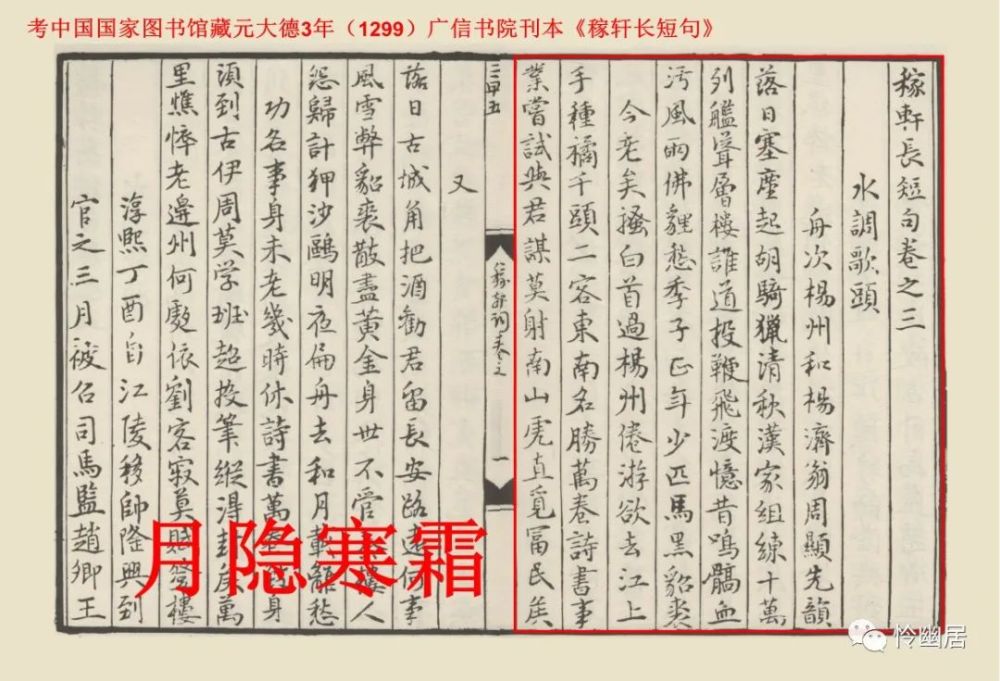 考中国国家图书馆藏元大德3年（1299）广信书院刊本《稼轩长短句》
稼軒長短句卷之三
水調歌頭
舟次楊州和楊濟翁周顯先韻
落日塞塵起胡騎獵清秋漢家組練十萬
列艦聳層樓誰道投鞭飛渡憶昔鳴髇血
汚風雨佛貍愁季子正年少匹馬黑貂裘
今老矣搔白首過楊州倦游欲去江上
手種橘千頭二客東南名勝萬卷詩書事
業嘗試與君謀莫射南山虎直覓富民侯
稼軒詞卷之
一
又
落日古城角把酒勸君留長安路遠何事
風雪弊貂裘散盡黃金身世不管樓人
怨歸計狎沙鷗明夜扁舟去和月載離愁
功名事身未老幾時休詩書萬身
須到古伊周莫学班超投筆縱得封侯萬
里憔悴老邊州何處依劉客寂寞賦登樓
淳熙丁酉自江陵移帥隆興到
官之三月被召司馬監趙卿王
月隐寒霜
怜幽居